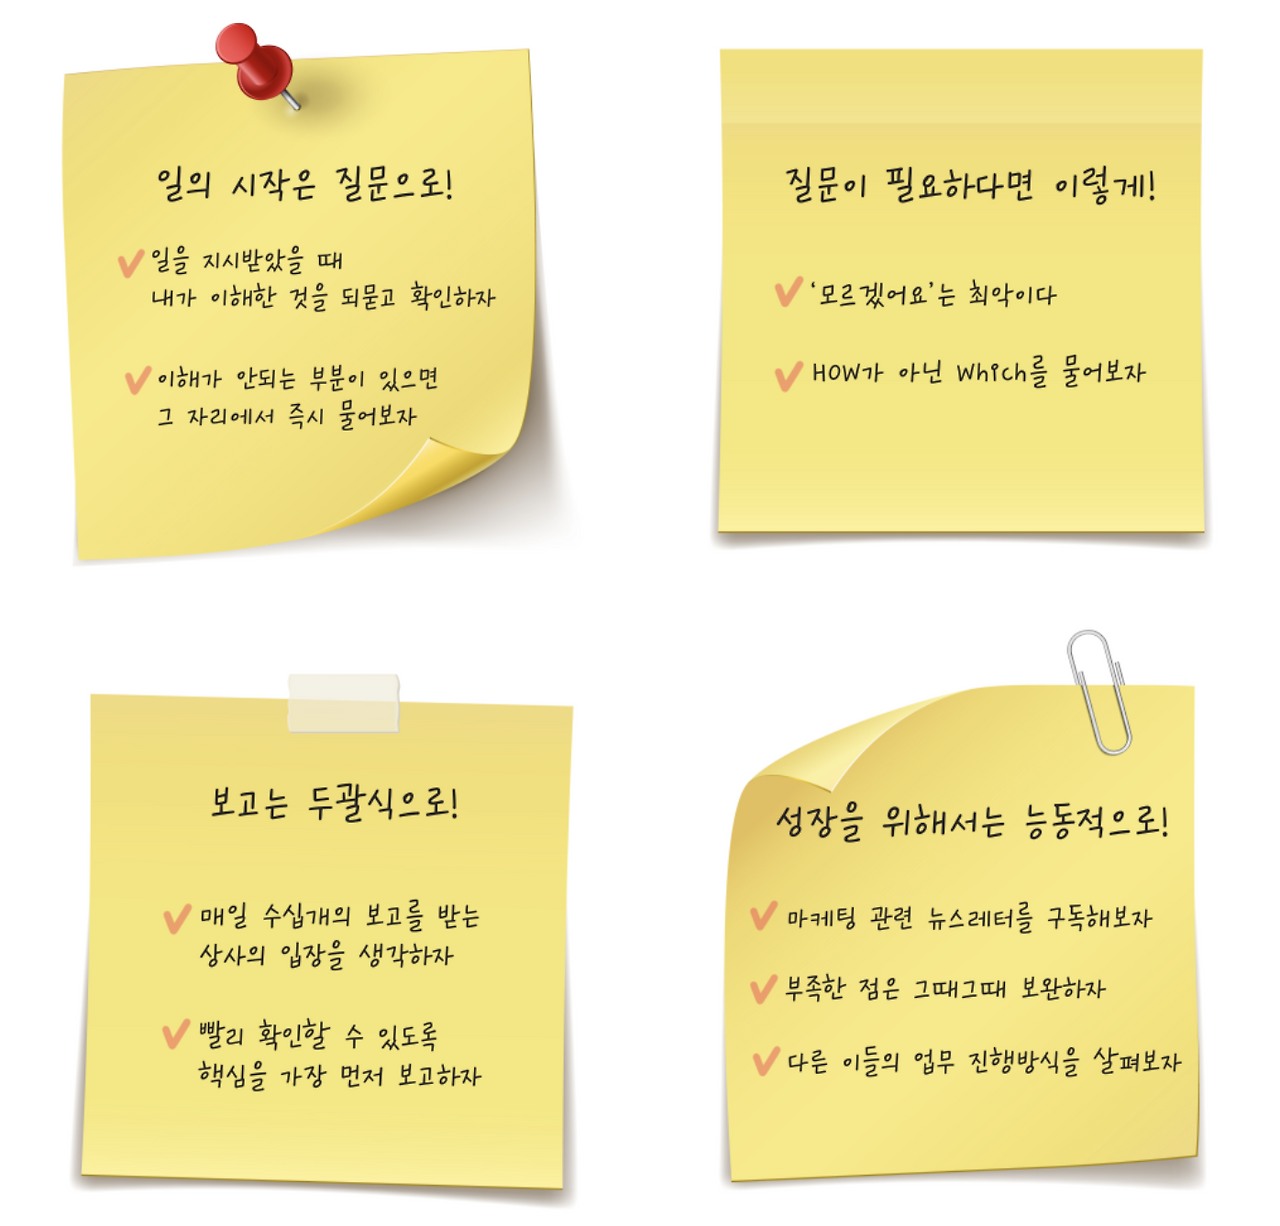 일의 시작은 질문으로!
일을 지시받았을 때
내가 이해한 것을 되묻고 확인하자
이해가 안되는 부분이 있으면
그 자리에서 즉시 물어보자
질문이 필요하다면 이렇게!
'모르겠어요'는 최악이다
HOW가 아닌 Which를 물어보자
보고는 두괄식으로!
매일 수십개의 보고를 받는
상사의 입장을 생각하자
빨리 확인할 수 있도록
핵심을 가장 먼저 보고하자
성장을 위해서는 능동적으로!
마케팅 관련 뉴스레터를 구독해보자
부족한 점은 그때그때 보완하자
다른 이들의 업무 진행방식을 살펴보자